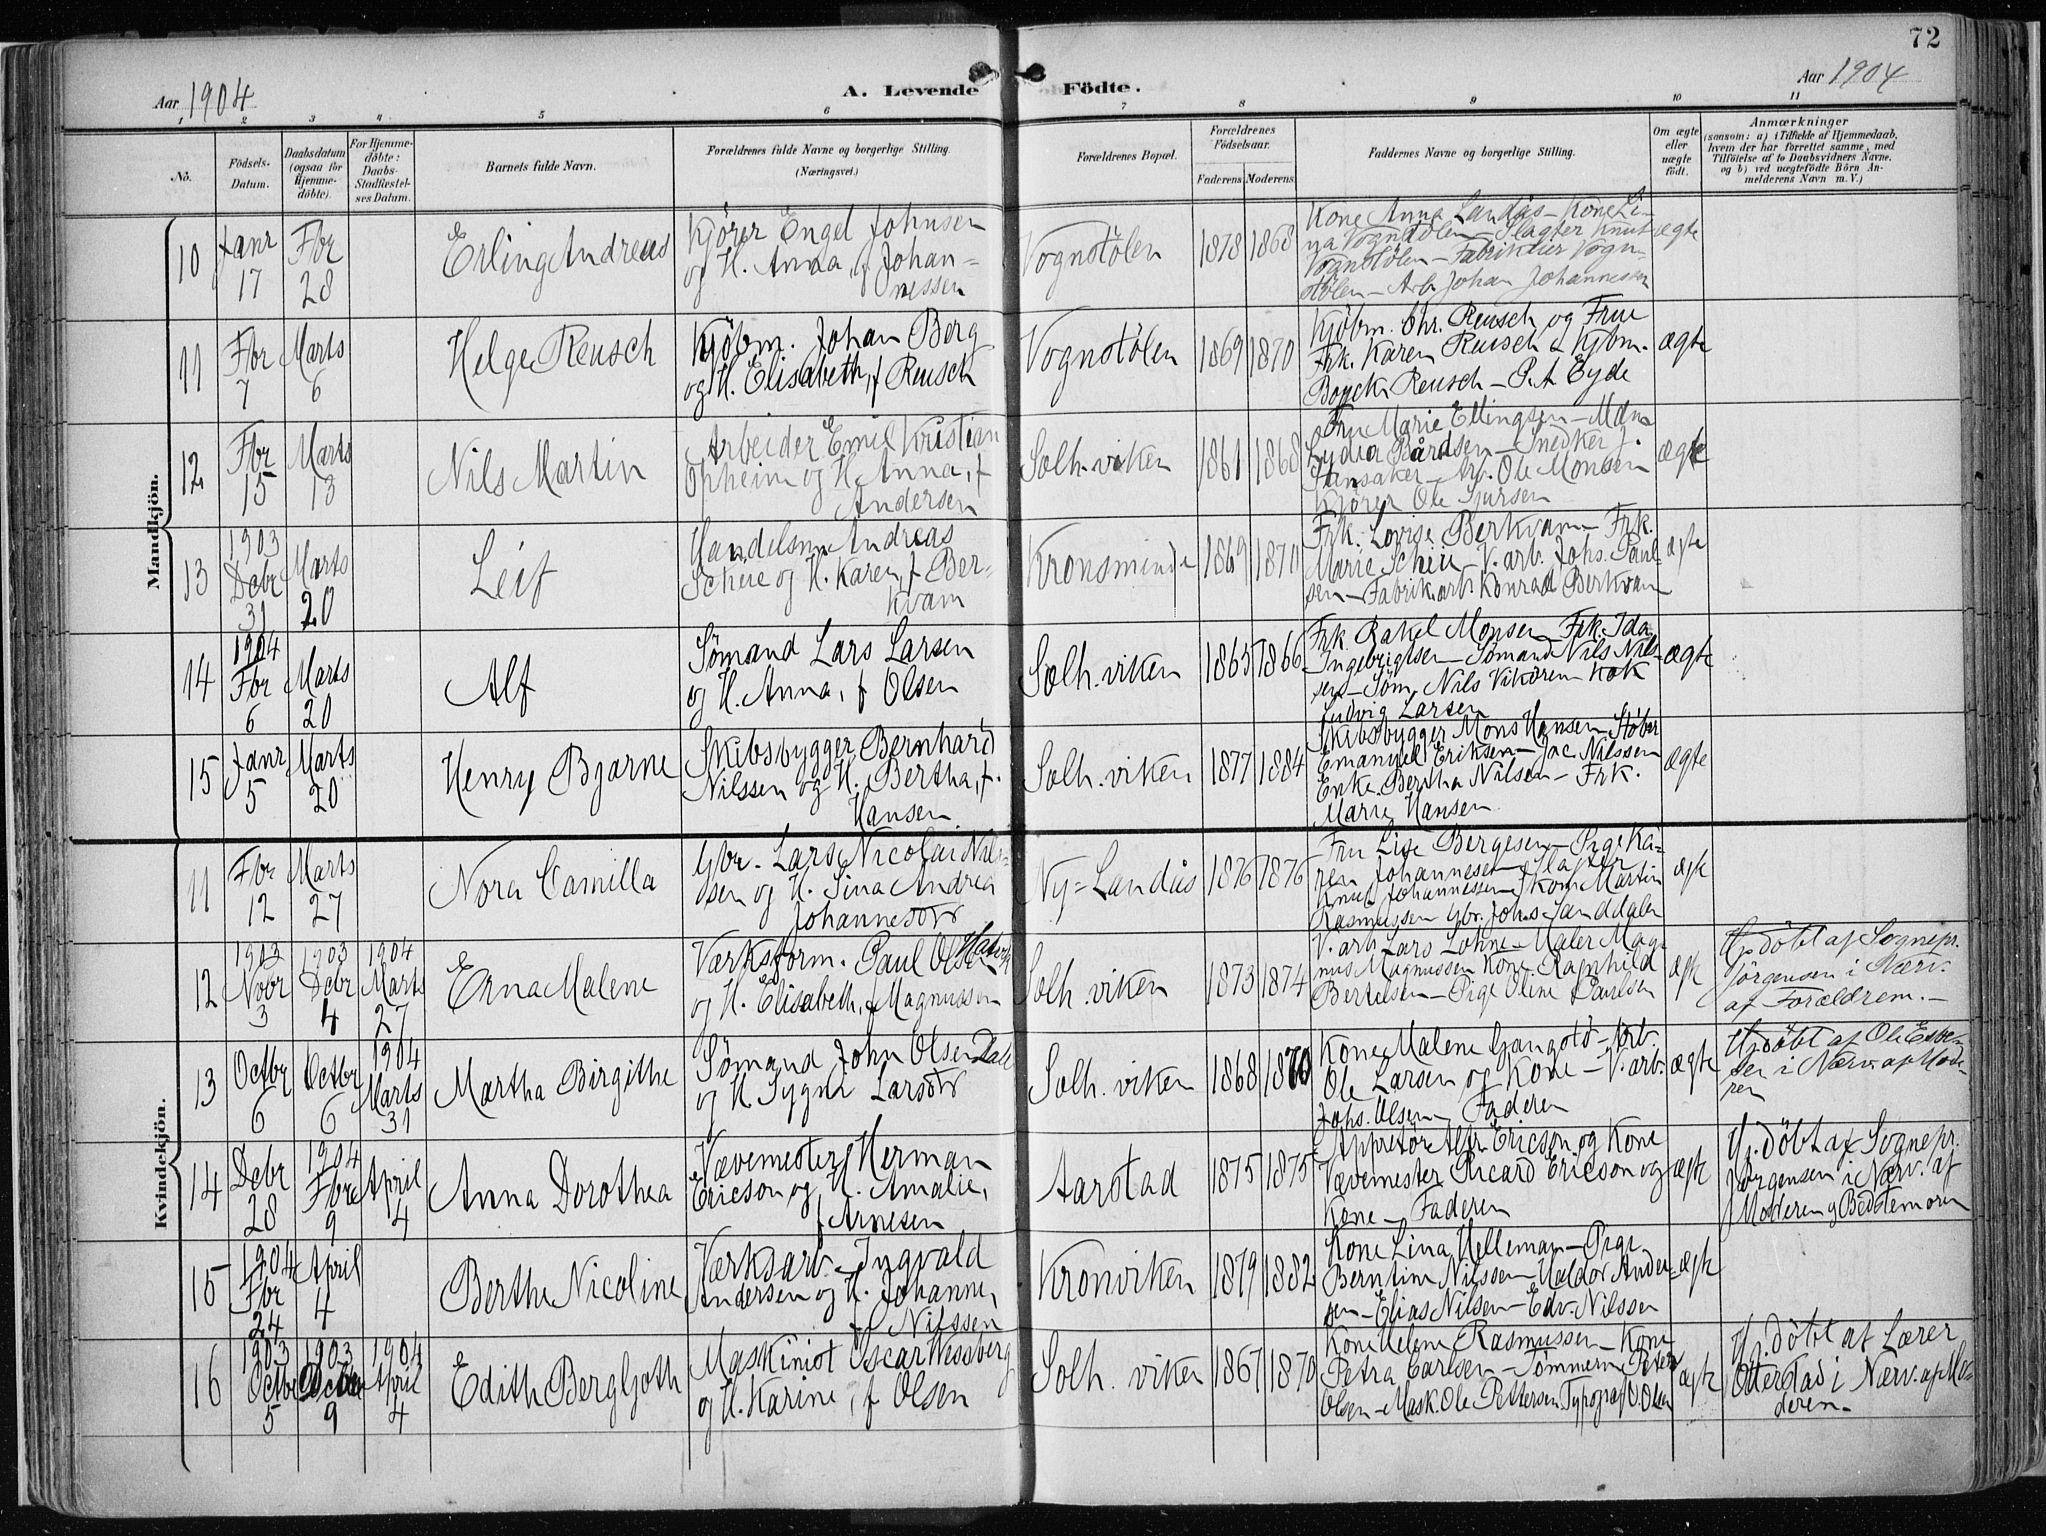 72
Aar 1904
A. Levende Födte.
Aar 1904
1 2 3 4 5 6 7 8 9 10 11
No.
Födsels-Datum.
Daabsdatum (ogsaa for Hjemmedöbte).
For Hjemmedöbte: Daabs-Stadfæstelses Datum.
Barnets fulde Navn.
Forældrenes fulde Navne og borgerlige Stilling. (Næringsvei.)
Forældrenes Bopæl.
Forældrenes Födselsaar.
Faderens Moderens
Faddernes Navne og borgerlige Stilling.
Om ægte eller uægte födt.
Anmærkninger
(saasom: a) i Tilfælde af Hjemmedaab, hvem der har forrettet samme, med Tilföielse af to Daabsvidners Navne, og b) ved uægtefödte Börn Anmelderens Navn m. V.)
Mandkjön.
10
Janr 17
Fbr 28
Erling Andreas
Kjører Engel Johnsen
og H. Anna, f Johan-
nessen
Vognstølen
1878 1868
Kone Anna Landås - Kone Li-
na Vognstølen - Slagter Knut
Vognstølen - Fabrikeier Vogn-
stølen - Arb Johan Johannessen
ægte
11
Fbr 7
Marts 6
Helge Reusch
Kjøbm. Johan Berg
og H. Elisabeth, f Reusch
Vognstølen
1869 1870
Kjøbm. Chr. Reusch og Frue
Frk. Karen Reusch & Kjøbm.
Reusch - P. A Eyde
ægte
12
Fbr 15
Marts 13
Nils Martin
Arbeider Emil Kristian
Opheim og H. Anna, f
Andersen
Solh. viken
1861 1868
Fru Marie Ellingsen -
Lydia Bårdsen - Snedker J.
- Arb. Ole Monsen
Kjører Ole Sjursen
ægte
13
1903 Debr 31
Marts 20
Leif
Handelsm. Andreas
Scheie og H. Karen, f Ber-
kvam
Kronsminde
1869 1870
Frk. Lovise Berkvam - Frk.
Marie Scheie - V. arb. Johs. Paul-
sen - Fabrikarb. Konrad Berkvam
ægte
14
1904 Fbr 6
Marts 20
Alf
Sømand Lars Larsen
og H. Anna, f Olsen
Solh. viken
1865 1866
Frk. Rakel Monsen - Frk. Ida
Ingebrigtsen - Sømand Nils Nil-
sen - Søm. Nils Vikøren Kok
Ludvig Larsen
ægte
15
Janr 5
Marts 20
Henry Bjarne
Skibsbygger Bernhard
Nilssen og H. Bertha, f.
Hansen
Solh. viken
1877 1884
Skibsbygger Mons Hansen - Støber
Emanuel Eriksen - Jac Nilssen
Enke Bertha Nilsen - Frk.
Marie Hansen
ægte
Kvindekjön.
11
Fbr 12
Marts 27
Nora Camilla
Gbr. Lars Nicolai Nils-
sen og H. Sina Andrea
Johannesdtr
Ny-Landås
1876 1876
Fru Lise Bergesen - Pige Ka-
ren Johannesen - Slagter
Knut Johannessen - Kom Martin
Rasmussen Gbr. Johs Sanddalen
ægte
12
1903 Novbr 3
1903 Debr 4
1904 Marts 27
Erna Malene
Værksform. Paul Olsen
og H. Elisabeth, f Magnussen
Solh. viken
1873 1874
V. arb Lars Lohne - Maler Mag-
nus Magnussen Kone Ragnhild
Bertelsen - Pige Oline Paulsen
ægte
Hj. döbt af Sognepr.
Jørgensen i Nærv.
af Forældrene. -
13
Octbr 6
Octbr 6
1904 Marts 31
Martha Birgithe
Sømand John Olsen Dale
og H. Sygni Larsdtr
Solh. viken
1868 1870
Kone Malene Gangstø - Arb.
Ole Larsen og Kone - V. arb.
Johs. Olsen - Faderen
ægte
Hj. döbt af Ole Espe-
sen i Nærv. af Mode-
ren
14
Debr 28
1904 Fbre 9
April 4
Anna Dorothea
Vævemester Herman
Ericson og H. Amalie,
f Arnesen
Aarstad
1875 1875
Appretör Alfr. Ericson og Kone
Vævemester Ricard Ericson og
Kone - Faderen
ægte
Hj. döbt af Sognepr.
Jørgensen i Nærv. af
Moderen og Bedstemoren
15
1904 Fbr 24
April 4
Berthe Nicoline
Værksarb. Ingvald
Andersen og H. Johanne,
f Nilssen
Kronviken
1879 1882
Kone Lina Helleman - Pige
Berntine Nilssen - Haldor Ander-
sen - Elias Nilsen - Edv. Nilssen
ægte
16
1903 Octbr 5
1903 Octbr 9
1904 April 4
Edith Bergljoth
Maskinist Oscar Wessberg
og H. Karine, f Olsen
Solh. viken
1867 1870
Kone Helene Rasmussen - Kone
Petra Carlsen - Tømmerm Peter
Olsen - Mask. Ole Pettersen Typograf O. Olsen
ægte
Hj. döbt af Lærer
Otterstad i Nærv. af Mo-
deren -